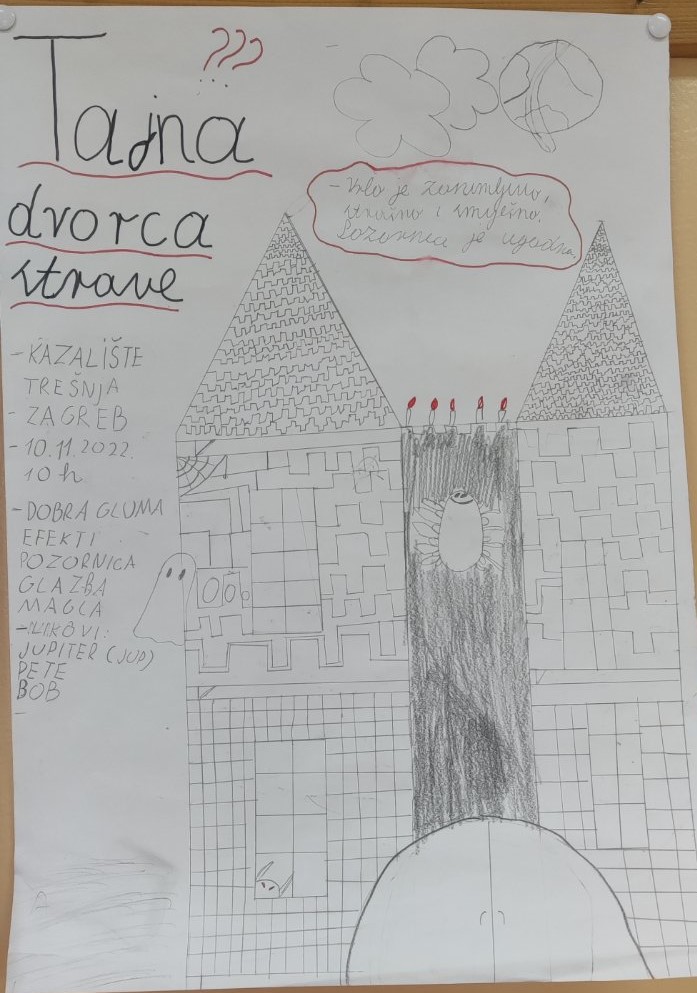 ???
Tajna
dvorca
strave
- Vrlo je zanimljivo,
strašno i smiješno.
Pozornica je ugodna.
- KAZALIŠTE
TREŠNJA
- ZAGREB
- 10.11.2022.
10 h
- DOBRA GLUMA
EFEKTI
POZORNICA
GLAZBA
MAGLA
- LIKOVI:
JUPITER (JUP)
PETE
BOB